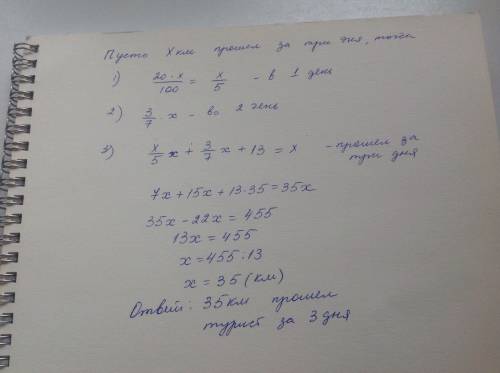 Пусть X км прошел за три дня, тогда
1) 20·x/100 = x/5 - в 1 день
2) 3/7 · x - во 2 день
3) x/5 x + 3/7 x + 13 = x - прошел за три дня
7x + 15x + 13·35 = 35x
35x - 22x = 455
13x = 455
x = 455 : 13
x = 35 (км)
Ответ: 35 км прошел
турист за 3 дня